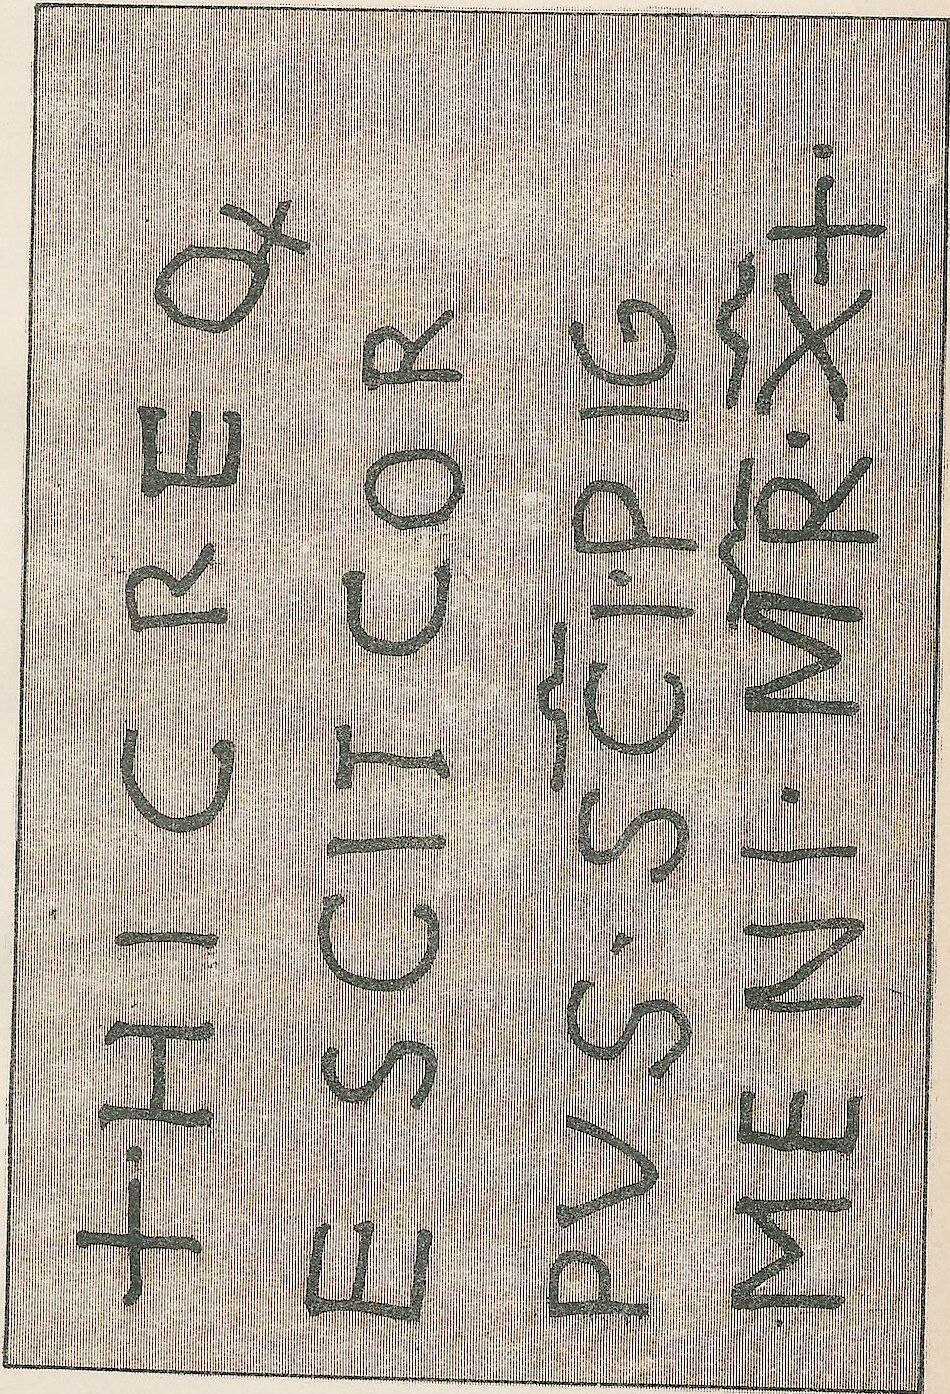 +·HIC REQ
ESCIT COR
PVS·SC̃I·PIG
MENI·M̃R̃·X̃+·